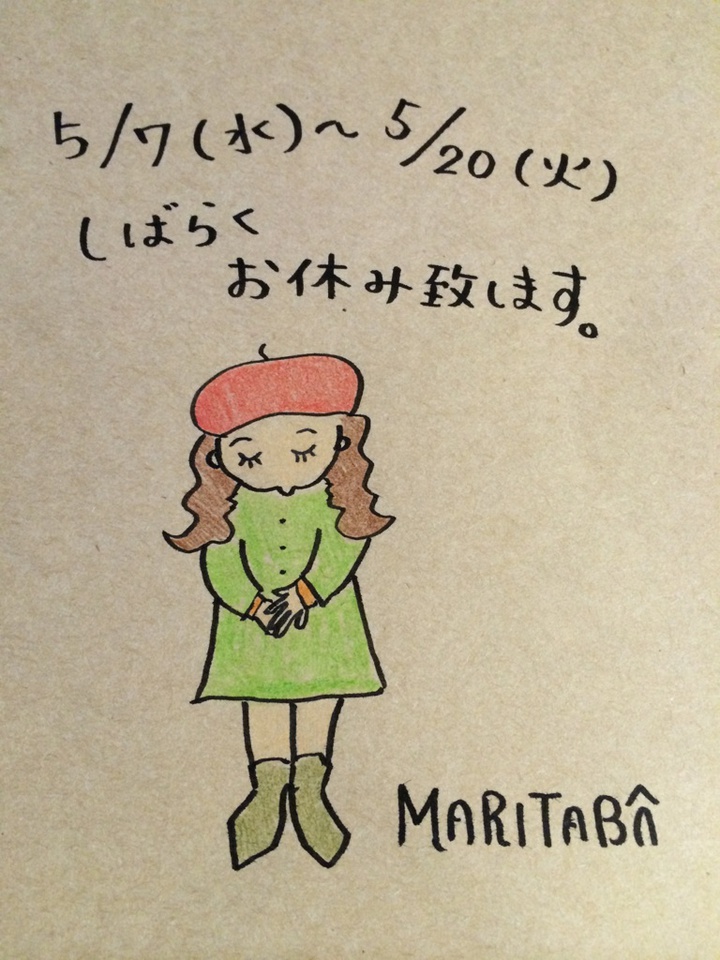 5/7(水)〜5/20(火)
しばらく
お休み致します。
MARITABÂ